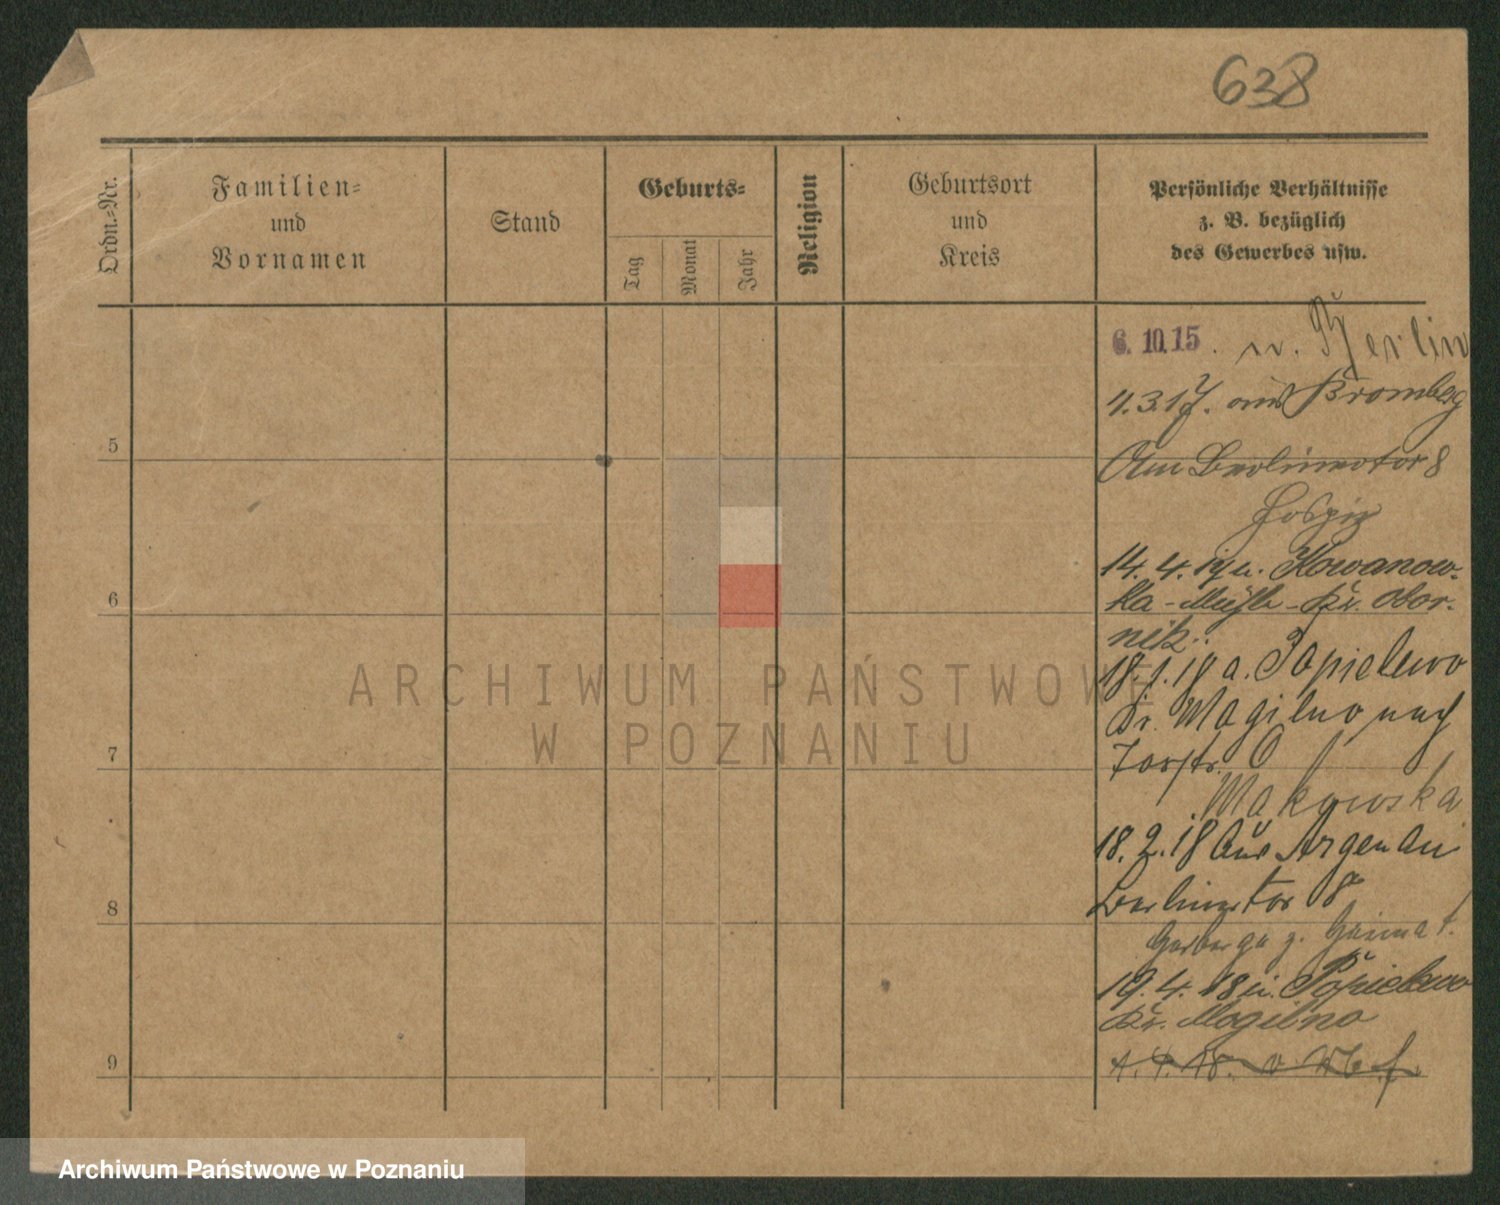 638
Ordn.-Nr.
Familien-
und
Vornamen
Stand
Geburts-
Tag
Monat
Jahr
Religion
Geburtsort
und
Kreis
Persönliche Verhältnisse
z. B. bezüglich
des Gewerbes usw.
6. 10. 15. n. Berlin
4.3.17. aus Bromberg
5
Am Berlinertor 8
Hospiz
14. 4. 17 n. Kowanow-
6
ka-Mühle-Kr. Obor-
nik.
18. 1. 18 a. Popielewo
Kr. Mogilno nach
7
Torstr.
Makowska
18. 2. 18 aus Argenau
8
Berlinertor 8
Herberge z. Heimat.
19. 4. 18 n. Popielewo
Kr. Mogilno
9
ARCHIWUM PAŃSTWOWE
W POZNANIU
Archiwum Państwowe w Poznaniu